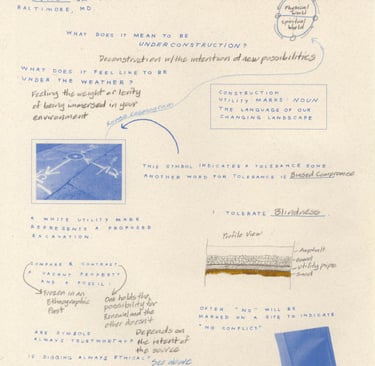 BALTIMORE, MD.
Physical
world
spiritual
world
WHAT DOES IT MEAN TO BE
UNDERCONSTRUCTION?
Deconstruction w/the intention of new possibilities
WHAT DOES IT FEEL LIKE TO BE
UNDER THE WEATHER?
Feeling the weight or levity
of being immersed in your
environment
CONSTRUCTION
UTILITY MARKS: NOUN
THE LANGUAGE OF OUR
CHANGING LANDSCAPE
THIS SYMBOL INDICATES A TOLERANCE ZONE.
ANOTHER WORD FOR TOLERANCE IS Biased Compromise
A WHITE UTILITY MARK
REPRESENTS A PROPOSED
EXCAVATION.
I TOLERATE Blindness.
Profile View
Asphalt
Gravel
utility pipe
Sand
COMPARE & CONTRAST
A VACANT PROPERTY
AND A FOSSIL:
Frozen in an
Ethnographic
Past
One holds the
possibility for
Renewal and the
other doesn't
OFTEN "NC" WILL BE
MARKED ON A SITE TO INDICATE
"NO CONFLICT"
ARE SYMBOLS
ALWAYS TRUSTWORTHY?
Depends on
the intent of
the source
IS DIGGING ALWAYS ETHICAL?
See above